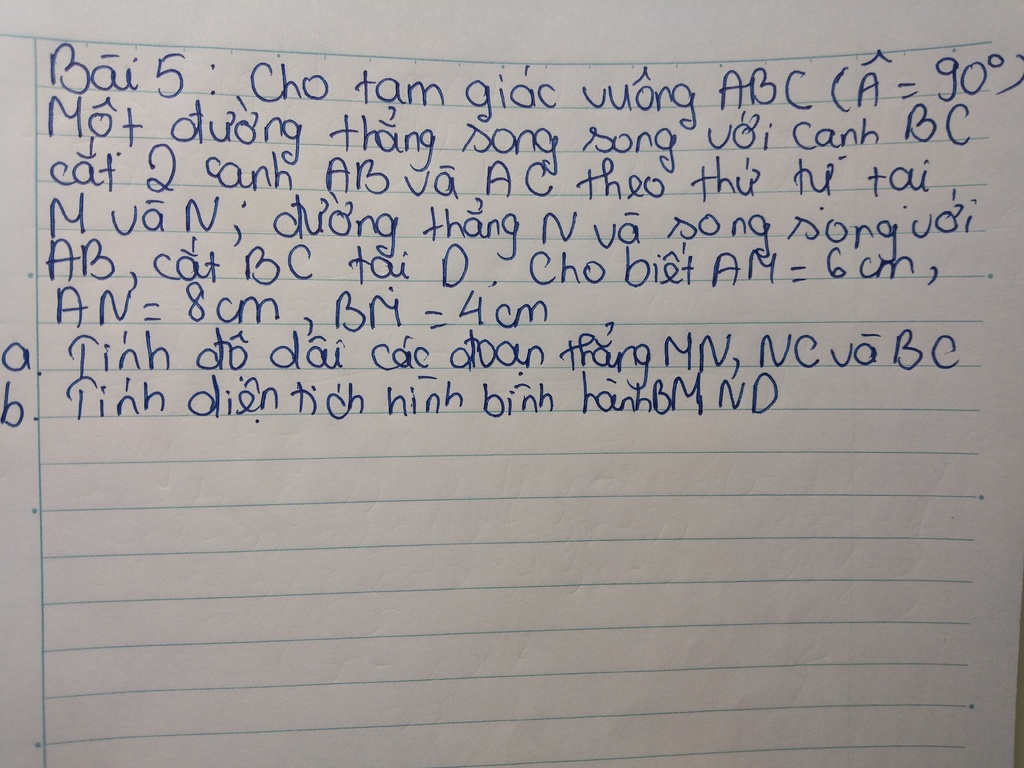 Bài 5: Cho tam giác vuông ABC (Â = 90°)
Một đường thẳng song song với cạnh BC
cắt 2 cạnh AB và AC theo thứ tự tại
M và N; đường thẳng N và song song với
AB, cắt BC tại D. Cho biết AM = 6 cm,
AN = 8 cm, BM = 4 cm
a. Tính độ dài các đoạn thẳng MN, NC và BC
b. Tính diện tích hình bình hành BMND